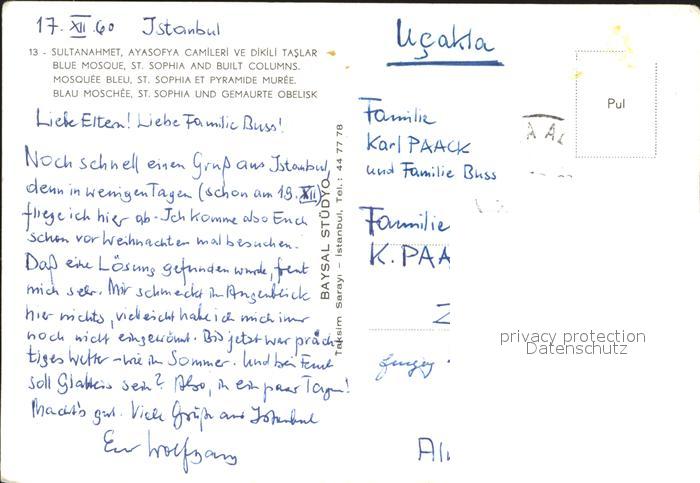 17. XII. 60 Istanbul
13 - SULTANAHMET, AYASOFYA CAMİLERİ VE DİKİLİ TAŞLAR
BLUE MOSQUE, ST. SOPHIA AND BUILT COLUMNS.
MOSQUÉE BLEU, ST. SOPHIA ET PYRAMIDE MURÉE.
BLAU MOSCHÉE, ST. SOPHIA UND GEMAURTE OBELISK
Liebe Eltern! Liebe Familie Buss!
Noch schnell einen Gruß aus Istanbul,
denn in wenigen Tagen (schon am 19. XII)
fliege ich hier ab. Ich komme also Euch
schon vor Weihnachten mal besuchen.
Daß eine Lösung gefunden wurde, freut
mich sehr. Mir schmeckt im Augenblick
hier nichts, vielleicht habe ich mich immer
noch nicht eingewöhnt. Bis jetzt war präch-
tiges Wetter - wie im Sommer. Und bei Euch
soll Glatteis sein? Also, in ein paar Tagen!
Macht's gut. Viele Grüße aus Istanbul
Euer Wolfgang
BAYSAL STÜDYO
Taksim Sarayı - İstanbul, Tel.: 44 77 78
Uçakla
Pul
Familie
Karl PAACK
und Familie Buss
Familie
K. PAA
privacy protection
Datenschutz